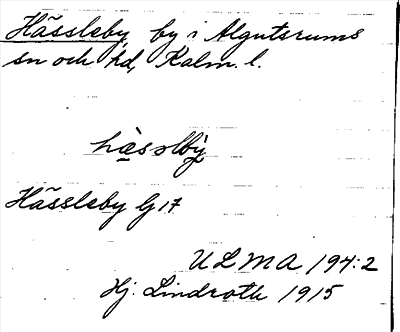 Hässleby, by i Algutsrums
sn och hd, Kalm. l.
hàsəlby̆
Hässleby G 17
ULMA 194:2
Hj. Lindroth 1915